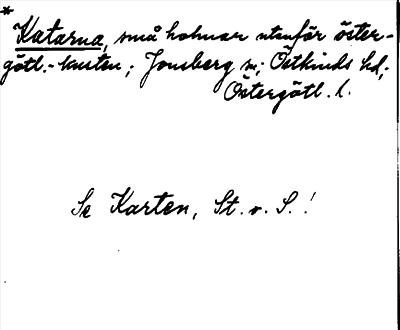 *
Katarna, små holmar utanför öster-
götl.-kusten; Jonsberg sn; Östkinds hd;
Östergötl. l.
Se Karten, St. o. S.!